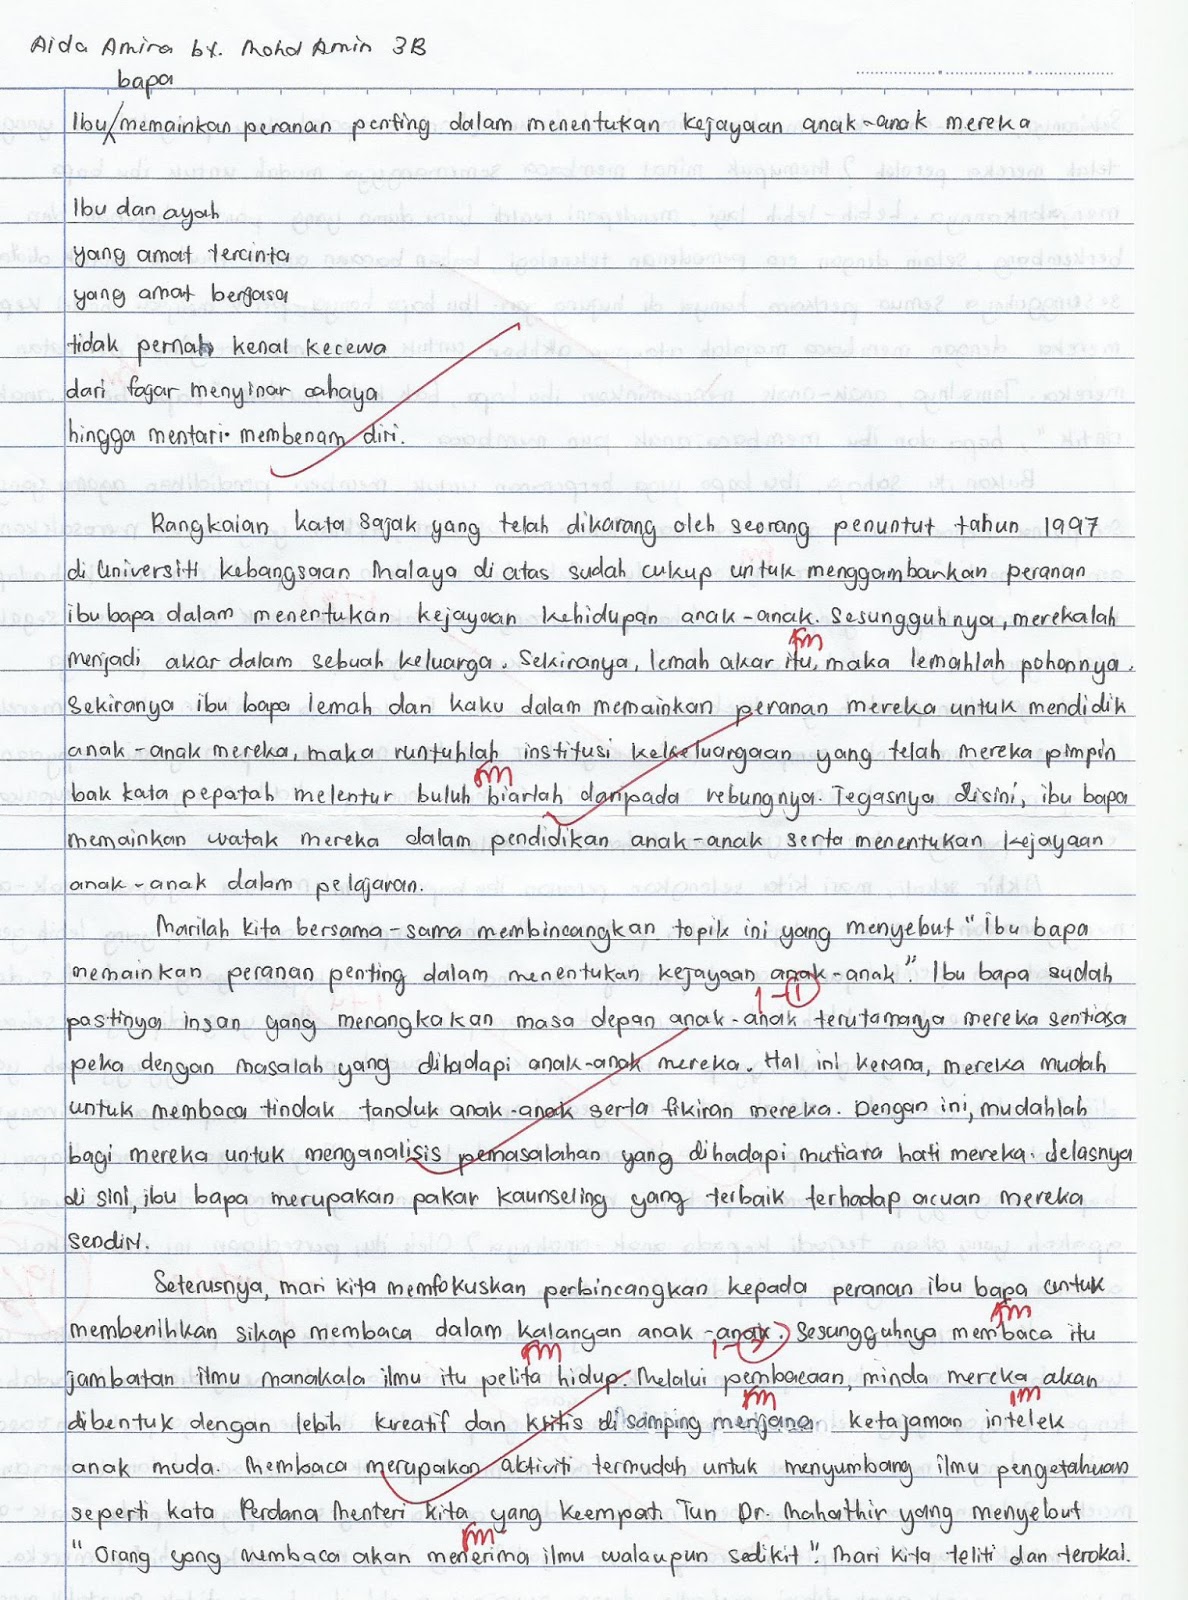 Aida Amira bt. Mohd Amin 3B
bapa
Ibu memainkan peranan penting dalam menentukan kejayaan anak-anak mereka
Ibu dan ayah
yang amat tercinta
yang amat berjasa
tidak pernah kenal kecewa
dari fajar menyinar cahaya
hingga mentari membenam diri.
Rangkaian kata sajak yang telah dikarang oleh seorang penuntut tahun 1997
di Universiti Kebangsaan Malaya di atas sudah cukup untuk menggambarkan peranan
ibu bapa dalam menentukan kejayaan kehidupan anak-anak. Sesungguhnya, merekalah
menjadi akar dalam sebuah keluarga. Sekiranya, lemah akar itu, maka lemahlah pohonnya.
Sekiranya ibu bapa lemah dan kaku dalam memainkan peranan mereka untuk mendidik
anak-anak mereka, maka runtuhlah institusi kekeluargaan yang telah mereka pimpin
bak kata pepatah melentur buluh biarlah daripada rebungnya. Tegasnya disini, ibu bapa
memainkan watak mereka dalam pendidikan anak-anak serta menentukan kejayaan
anak-anak dalam pelajaran.
Marilah kita bersama-sama membincangkan topik ini yang menyebut "ibu bapa
memainkan peranan penting dalam menentukan kejayaan anak-anak". Ibu bapa sudah
pastinya insan yang merangkakan masa depan anak-anak terutamanya mereka sentiasa
peka dengan masalah yang dihadapi anak-anak mereka. Hal ini kerana, mereka mudah
untuk membaca tindak tanduk anak-anak serta fikiran mereka. Dengan ini, mudahlah
bagi mereka untuk menganalisis pemasalahan yang dihadapi mutiara hati mereka. Jelasnya
di sini, ibu bapa merupakan pakar kaunseling yang terbaik terhadap acuan mereka
sendiri.
Seterusnya, mari kita memfokuskan perbincangkan kepada peranan ibu bapa untuk
membenihkan sikap membaca dalam kalangan anak-anak. Sesungguhnya membaca itu
jambatan ilmu manakala ilmu itu pelita hidup. Melalui pembacaan, minda mereka akan
dibentuk dengan lebih kreatif dan kritis disamping menjana ketajaman intelek
anak muda. Membaca merupakan aktiviti termudah untuk menyumbang ilmu pengetahuan
seperti kata Perdana Menteri kita yang Keempat, Tun Dr. Mahathir yang menyebut
"Orang yang membaca akan menerima ilmu walaupun sedikit". Mari kita teliti dan terokai.